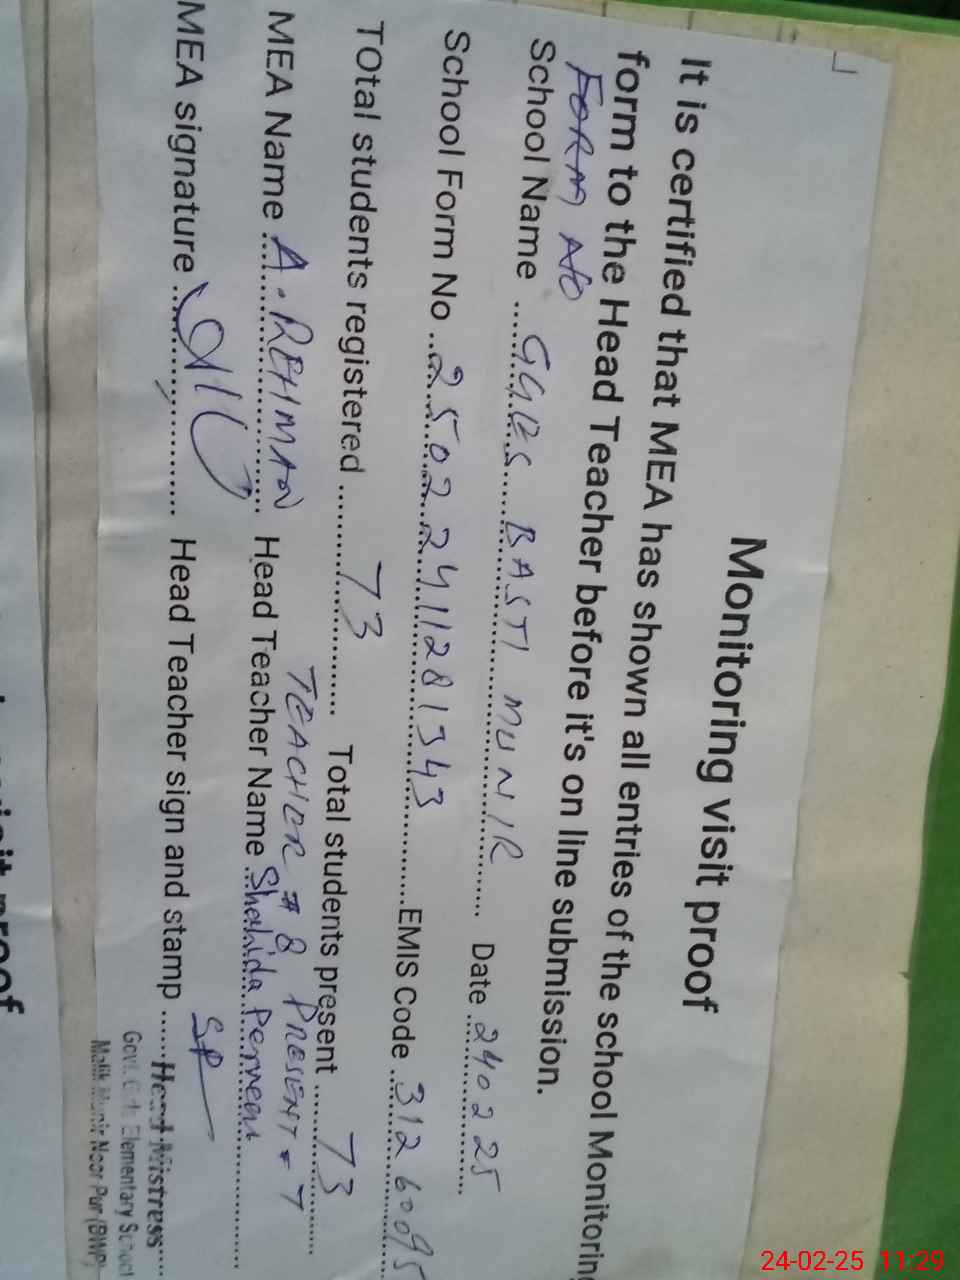 Monitoring visit proof
It is certified that MEA has shown all entries of the school Monitoring
form to the Head Teacher before it's on line submission.
FORM NO
School Name ..... GGES BASTI MUNIR ..... Date 240225
School Form No ... 25022411281343 ..... EMIS Code ... 31260095
TOtal students registered ..... 73 ..... Total students present ..... 73
TEACHER # 8 PRESENT = 7
MEA Name ... A. REHMAN Head Teacher Name Shahida Perveen
MEA signature ..... Head Teacher sign and stamp ..... SP
Head Mistress
Govt. Elementary School
Malik Munir Noor Pur (BWP)
24-02-25 11:29